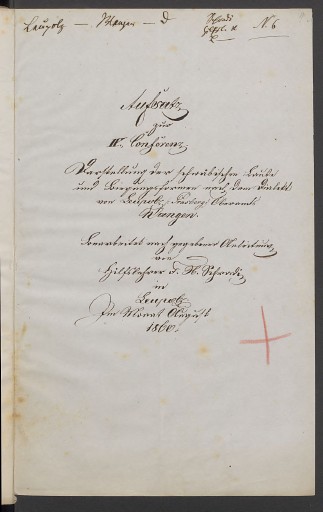 Leupolz — Wangen — D
N. 6
Aufsatz
zur
IV. Conferenz
Darstellung der schwäbischen Laute
und Biegungsformen nach dem Dialekt
von Leupolz, Oberamts
Wangen.
Bearbeitet nach gegebener Anleitung
von
Hilfslehrer
in
Leupolz
Im Monat August
1860.